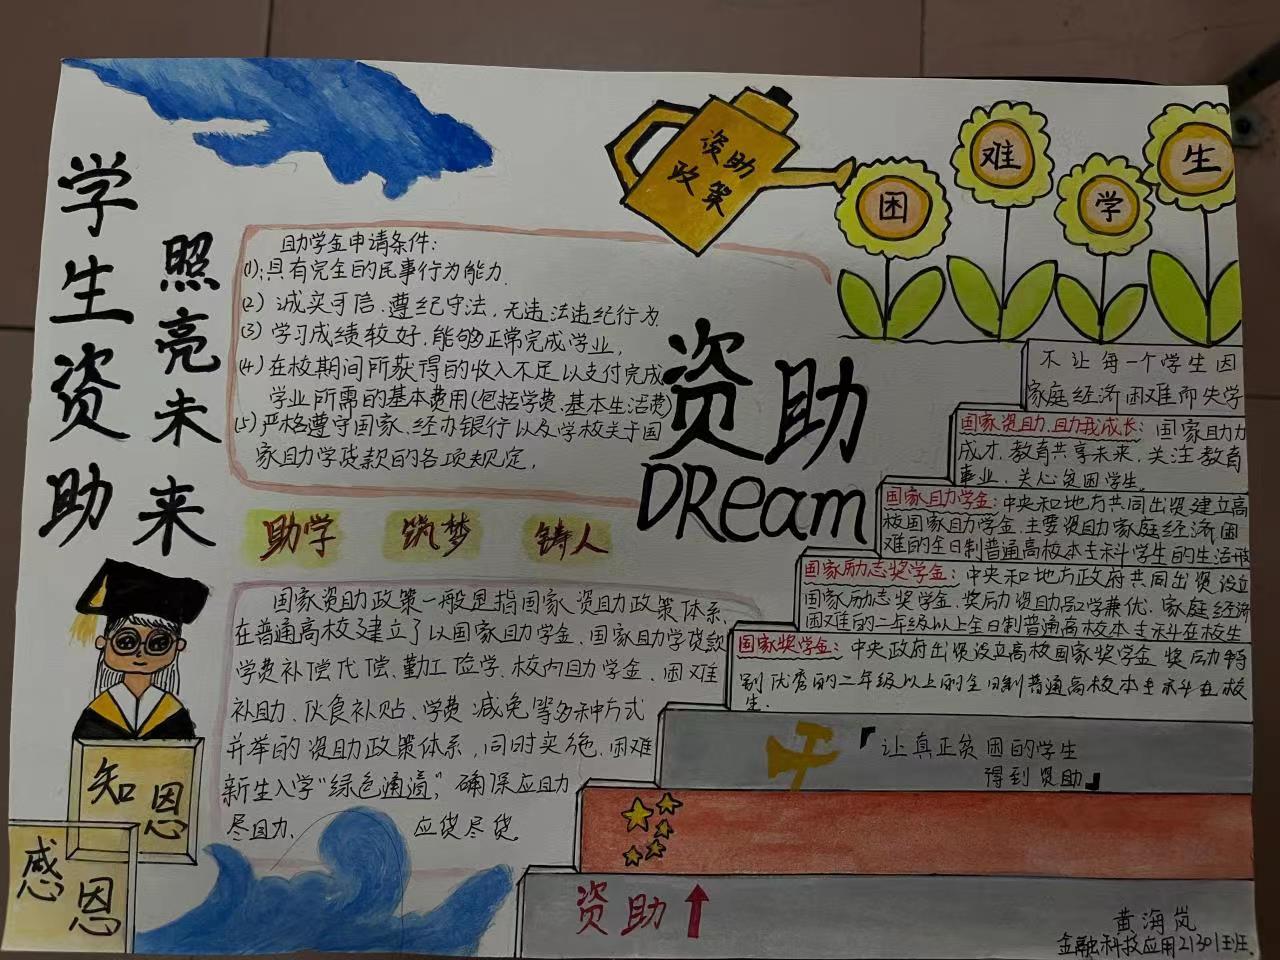 学生资助
照亮未来
资助
政策
困
难
学
生
助学金申请条件:
(1):具有完全的民事行为能力.
(2) 诚实可信.遵纪守法,无违法违纪行为.
(3) 学习成绩较好.能够正常完成学业,
(4)在校期间所获得的收入不足以支付完成
学业所需的基本费用(包括学费.基本生活费)
(5)严格遵守国家、经办银行以及学校关于国
家助学贷款的各项规定,
资助
DReam
助学 筑梦 铸人
国家资助政策一般是指国家资助政策体系.
在普通高校建立了以国家助学金、国家助学贷款
学费补偿代偿、勤工俭学、校内助学金、困难
补助、伙食补贴、学费减免等多种方式
并举的资助政策体系,同时实施,困难
新生入学“绿色通道”,确保应助
尽助、 应贷尽贷.
不让每一个学生因
家庭经济困难而失学
国家资助,助我成长:国家助力
成才,教育共享未来,关注教育
事业,关心贫困学生.
国家助学金:中央和地方共同出资建立高
校国家助学金.主要资助家庭经济困
难的全日制普通高校本专科学生的生活
国家励志奖学金:中央和地方政府共同出资设立
国家励志奖学金,奖励资助品学兼优.家庭经济
困难的二年级以上全日制普通高校本专科在校生
国家奖学金:中央政府出资设立高校国家奖学金 奖励特
别优秀的二年级以上的全日制普通高校本专科在校
生.
『让真正贫困的学生
得到资助』
知恩
感恩
资助
黄海岚
金融科技应用21301班